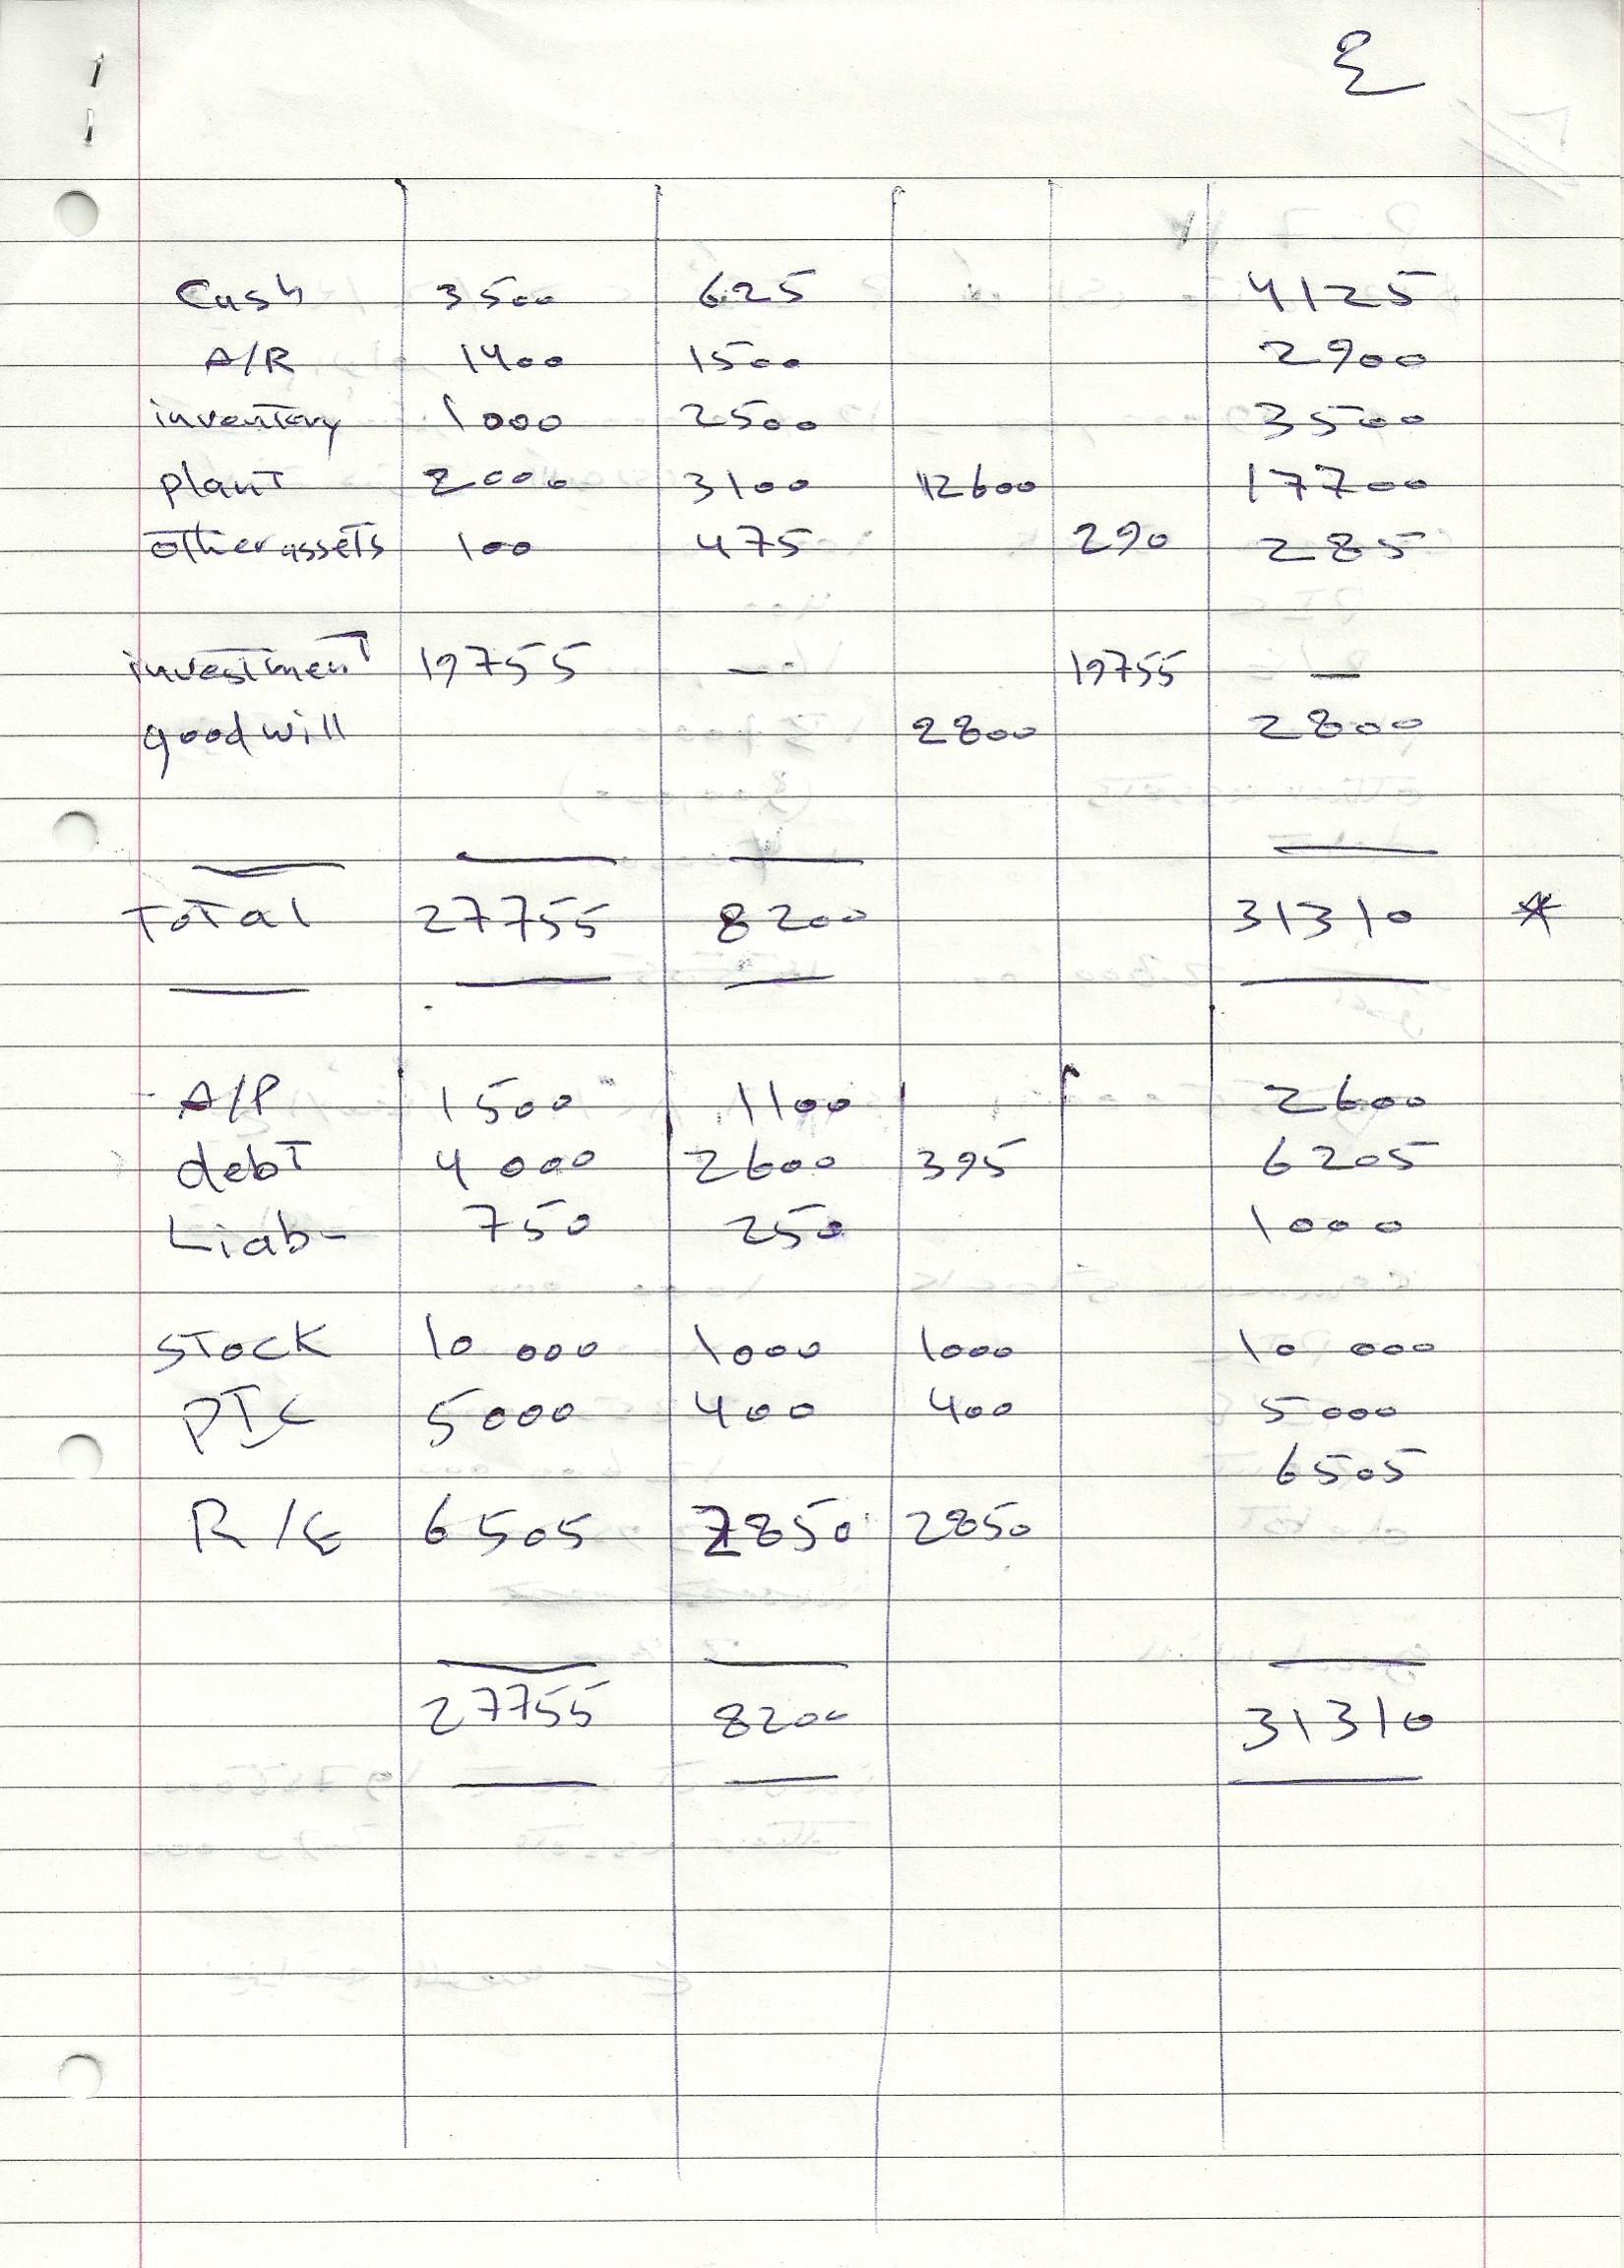 ٤
Cash 3500 625 4125
A/R 1400 1500 2900
inventory 1000 2500 3500
plant 2000 3100 12600 17700
other assets 100 475 290 285
investment 19755 — 19755 —
goodwill 2800 2800
Total 27755 8200 31310 *
A/P 1500 1100 2600
debt 4000 2600 395 6205
Liab- 750 250 1000
STOCK 10 000 1000 1000 10 000
PIC 5000 400 400 5000
6505
R/E 6505 2850 2850
27755 8200 31310